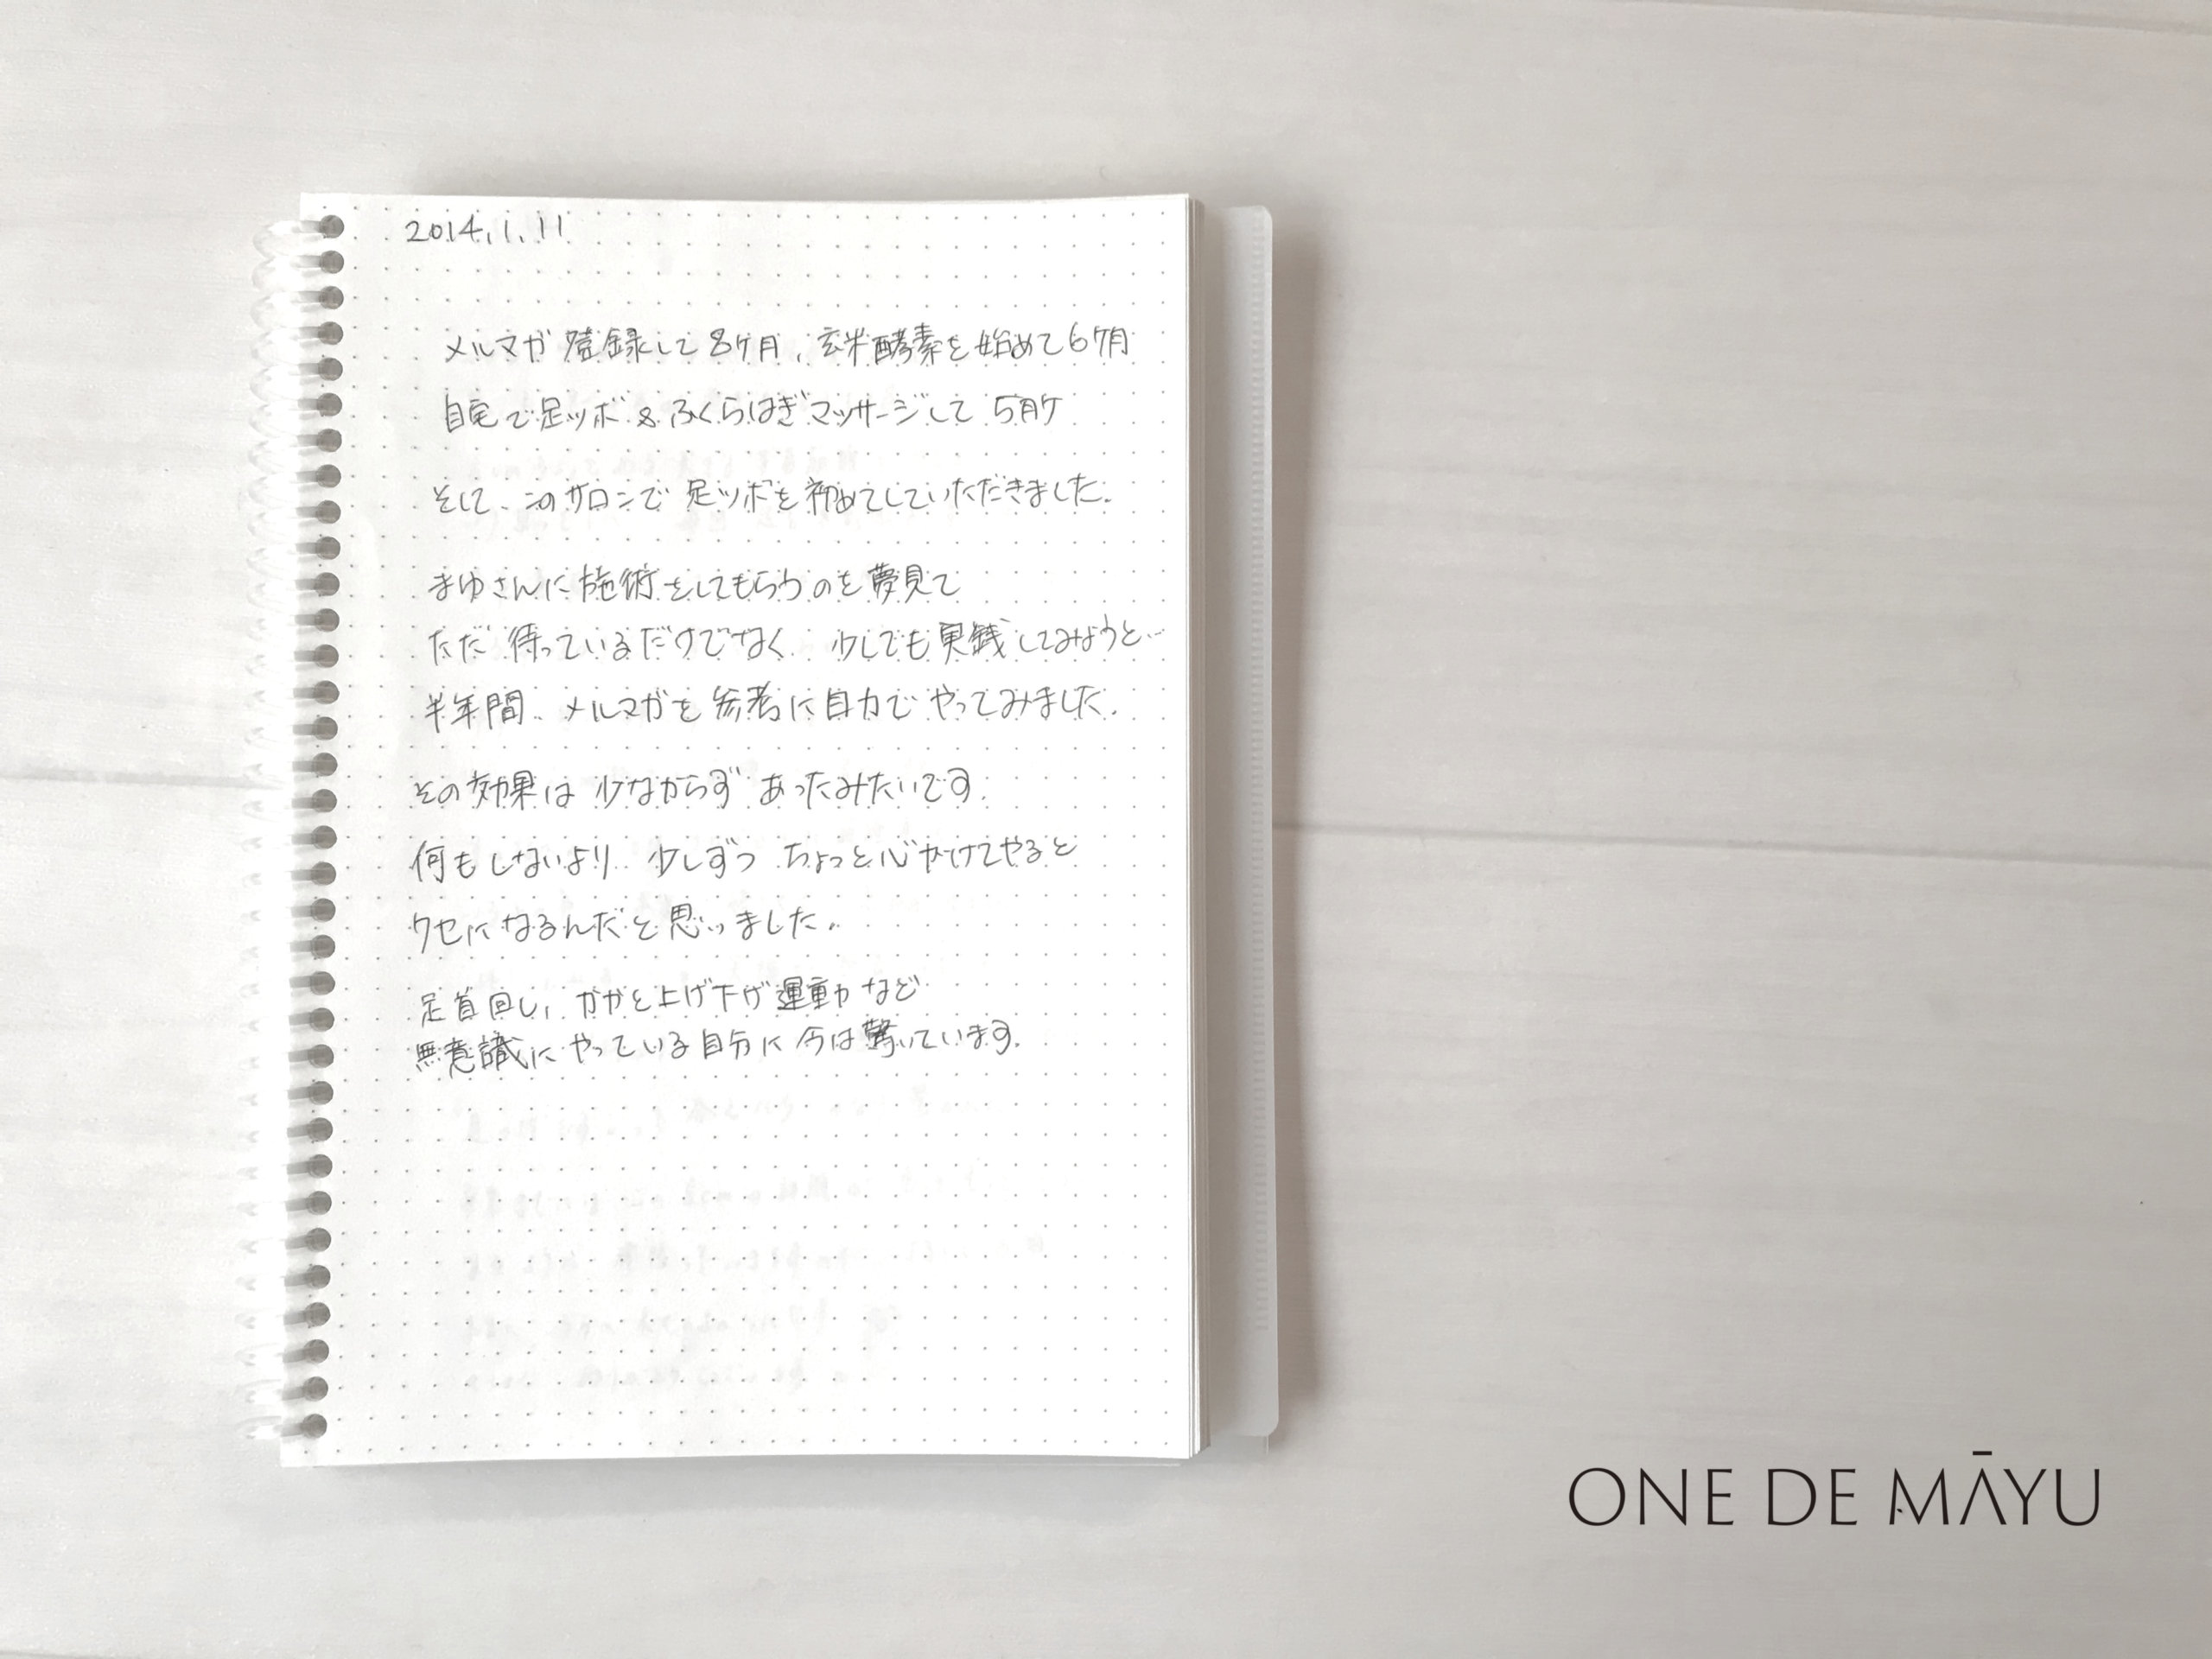 2014.1.11
メルマガ登録して8ヶ月、玄米酵素を始めて6ヶ月
自宅で足ツボ&ふくらはぎマッサージして 5月ケ
そして、このサロンで 足ツボを初めてしていただきました。
まゆさんに施術をしてもらうのを夢見て
ただ 待っているだけでなく 少しでも実銭してみようと…
半年間、メルマガを参考に自力でやってみました。
その効果は 少なからず あったみたいです。
何もしないより 少しずつ ちょっと心がけてやると
クセになるんだと思いました。
足首回し、かかと上げ下げ運動 など
無意識にやっている自分に 今は驚いています。
ONE DE MĀYU